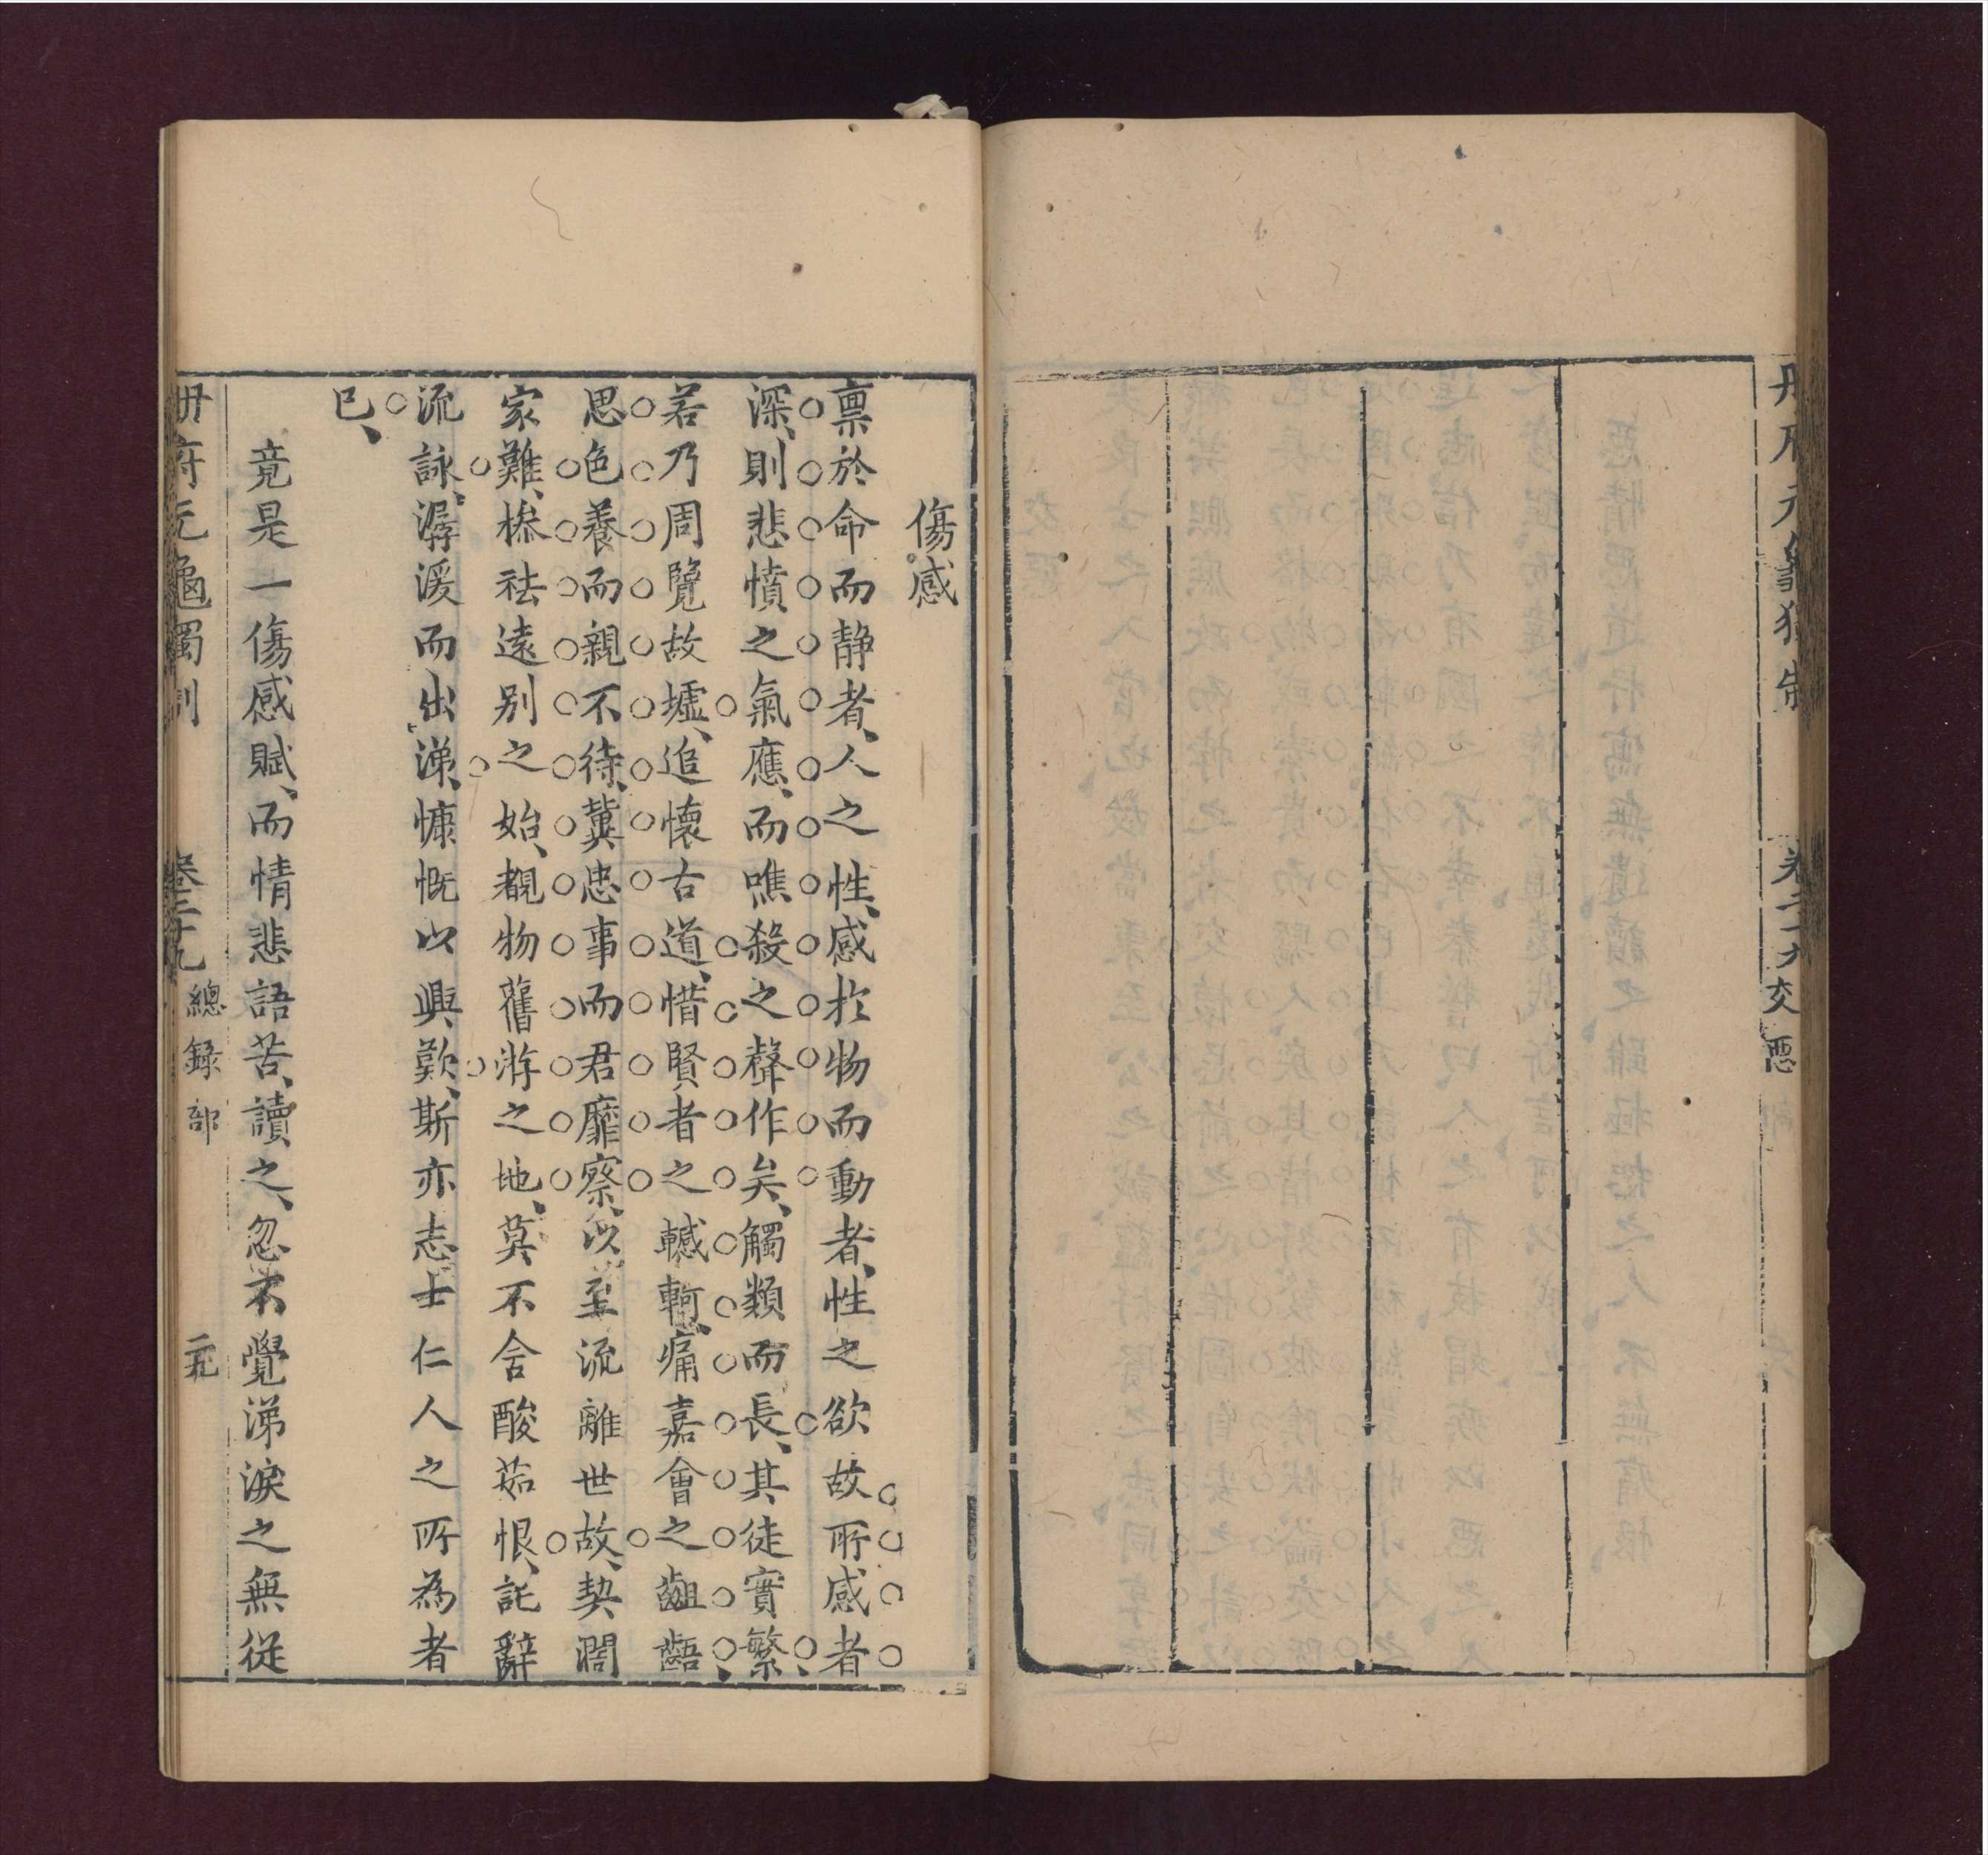 傷感
禀於命而静者、人之性、感於物而動者、性之欲故所感者
深、則悲憤之氣應、而噍殺之聲作矣、觸類而長、其徒實繁、
若乃周覽故墟、追懷古道、惜賢者之轗軻、痛嘉會之齟齬、
思色養而親不待、冀忠事而君靡察、以至流離世故、契濶
家難、摻袪遠别之始、覩物舊游之地、莫不含酸茹恨、託辭
流詠、潺湲而出涕、慷慨以興歎、斯亦志士仁人之所為者
已、
竟是一傷感賦、而情悲語苦、讀之、忽不覺涕淚之無從
冊府元龜獨制
卷二十九
總錄部
交惡